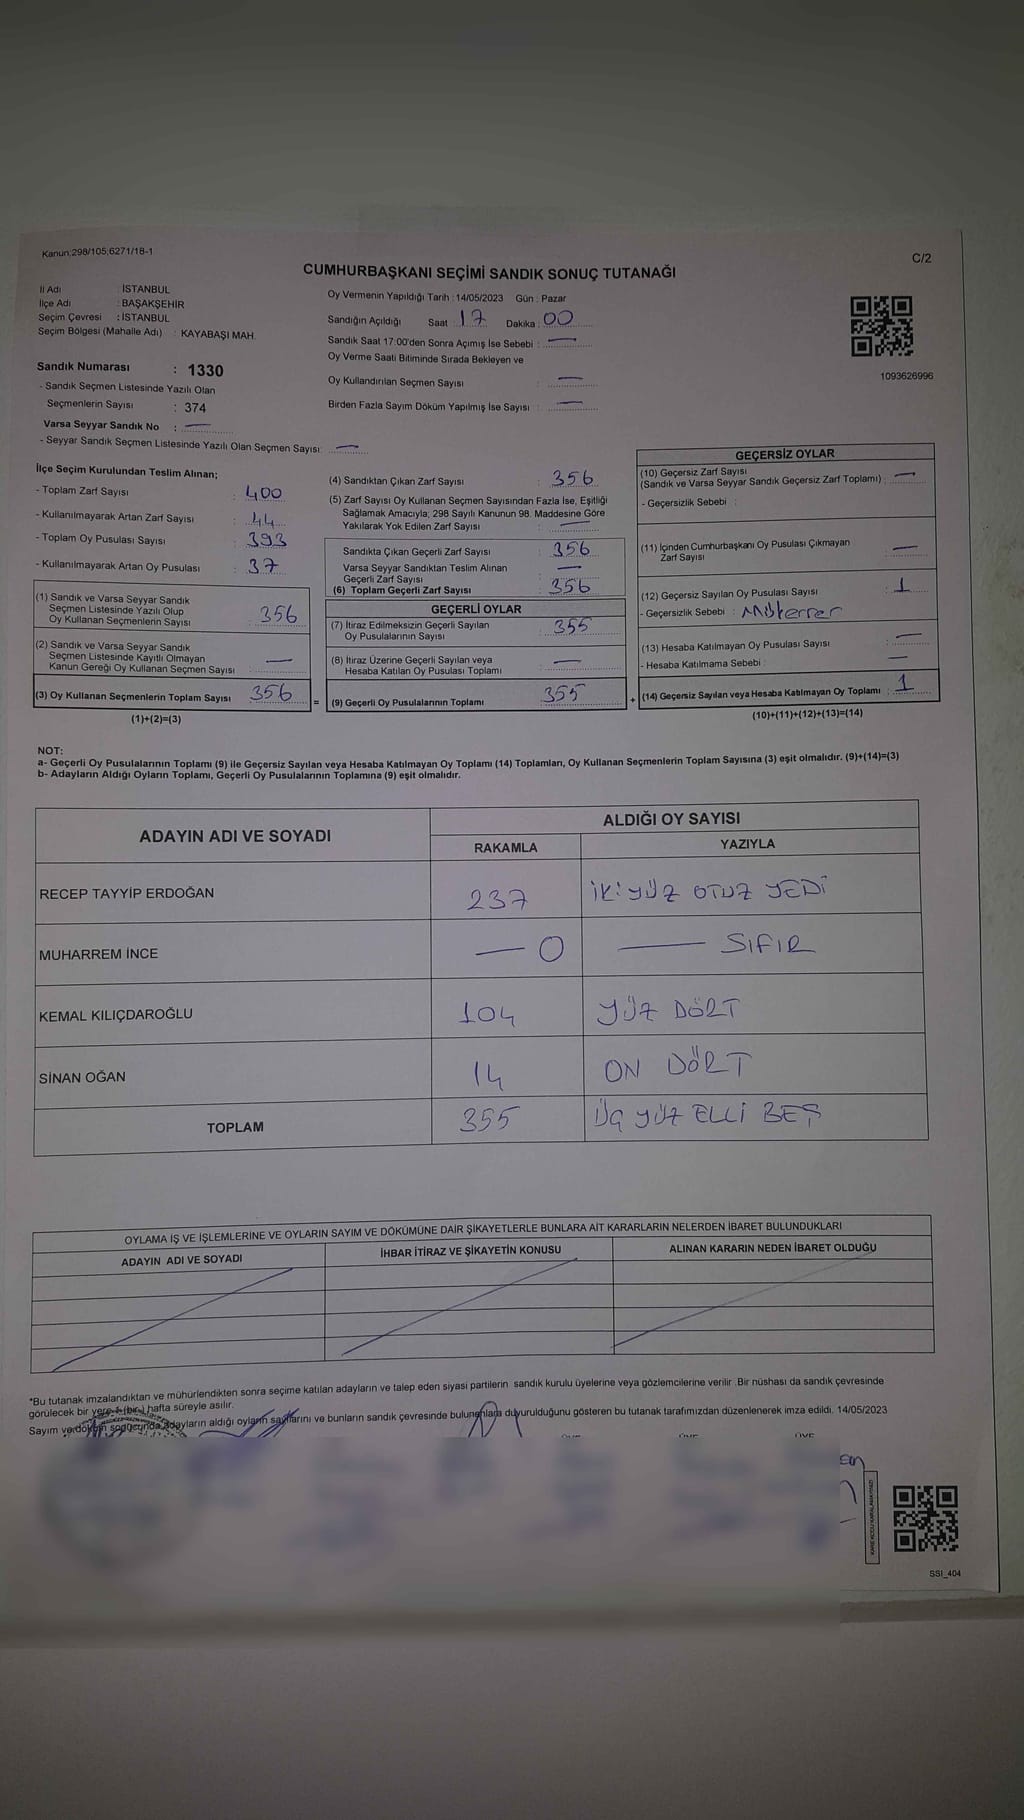 Kanun;298/105;6271/18-1
C/2
CUMHURBAŞKANI SEÇİMİ SANDIK SONUÇ TUTANAĞI
İl Adı : İSTANBUL
İlçe Adı : BAŞAKŞEHİR
Seçim Çevresi : İSTANBUL
Seçim Bölgesi (Mahalle Adı) : KAYABAŞI MAH.
Sandık Numarası : 1330
- Sandık Seçmen Listesinde Yazılı Olan
Seçmenlerin Sayısı : 374
Varsa Seyyar Sandık No : —
- Seyyar Sandık Seçmen Listesinde Yazılı Olan Seçmen Sayısı: —
Oy Vermenin Yapıldığı Tarih : 14/05/2023 Gün : Pazar
Sandığın Açıldığı Saat : 17 Dakika : 00
Sandık Saat 17:00'den Sonra Açımış İse Sebebi : —
Oy Verme Saati Bitiminde Sırada Bekleyen ve
Oy Kullandırılan Seçmen Sayısı : —
Birden Fazla Sayım Döküm Yapılmış İse Sayısı : —
1093626996
İlçe Seçim Kurulundan Teslim Alınan;
- Toplam Zarf Sayısı : 400
- Kullanılmayarak Artan Zarf Sayısı : 44
- Toplam Oy Pusulası Sayısı : 393
- Kullanılmayarak Artan Oy Pusulası : 37
(1) Sandık ve Varsa Seyyar Sandık
Seçmen Listesinde Yazılı Olup
Oy Kullanan Seçmenlerin Sayısı : 356
(2) Sandık ve Varsa Seyyar Sandık
Seçmen Listesinde Kayıtlı Olmayan
Kanun Gereği Oy Kullanan Seçmen Sayısı : —
(3) Oy Kullanan Seçmenlerin Toplam Sayısı : 356
(1)+(2)=(3)
(4) Sandıktan Çıkan Zarf Sayısı : 356
(5) Zarf Sayısı Oy Kullanan Seçmen Sayısından Fazla İse, Eşitliği
Sağlamak Amacıyla; 298 Sayılı Kanunun 98. Maddesine Göre
Yakılarak Yok Edilen Zarf Sayısı : —
Sandıkta Çıkan Geçerli Zarf Sayısı : 356
Varsa Seyyar Sandıktan Teslim Alınan
Geçerli Zarf Sayısı : —
(6) Toplam Geçerli Zarf Sayısı : 356
GEÇERLİ OYLAR
(7) İtiraz Edilmeksizin Geçerli Sayılan
Oy Pusulalarının Sayısı : 355
(8) İtiraz Üzerine Geçerli Sayılan veya
Hesaba Katılan Oy Pusulası Toplamı : —
= (9) Geçerli Oy Pusulalarının Toplamı 355
GEÇERSİZ OYLAR
(10) Geçersiz Zarf Sayısı
(Sandık ve Varsa Seyyar Sandık Geçersiz Zarf Toplamı) : —
- Geçersizlik Sebebi :
(11) İçinden Cumhurbaşkanı Oy Pusulası Çıkmayan
Zarf Sayısı : —
(12) Geçersiz Sayılan Oy Pusulası Sayısı : 1
- Geçersizlik Sebebi : Mükerrer
(13) Hesaba Katılmayan Oy Pusulası Sayısı : —
- Hesaba Katılmama Sebebi : —
+ (14) Geçersiz Sayılan veya Hesaba Katılmayan Oy Toplamı : 1
(10)+(11)+(12)+(13)=(14)
NOT:
a- Geçerli Oy Pusulalarının Toplamı (9) ile Geçersiz Sayılan veya Hesaba Katılmayan Oy Toplamı (14) Toplamları, Oy Kullanan Seçmenlerin Toplam Sayısına (3) eşit olmalıdır. (9)+(14)=(3)
b- Adayların Aldığı Oyların Toplamı, Geçerli Oy Pusulalarının Toplamına (9) eşit olmalıdır.
ADAYIN ADI VE SOYADI
ALDIĞI OY SAYISI
RAKAMLA YAZIYLA
RECEP TAYYİP ERDOĞAN 237 İKİ YÜZ OTUZ YEDİ
MUHARREM İNCE — 0 — SIFIR
KEMAL KILIÇDAROĞLU 104 YÜZ DÖRT
SİNAN OĞAN 14 ON DÖRT
TOPLAM 355 ÜÇ YÜZ ELLİ BEŞ
OYLAMA İŞ VE İŞLEMLERİNE VE OYLARIN SAYIM VE DÖKÜMÜNE DAİR ŞİKAYETLERLE BUNLARA AİT KARARLARIN NELERDEN İBARET BULUNDUKLARI
ADAYIN ADI VE SOYADI İHBAR İTİRAZ VE ŞİKAYETİN KONUSU ALINAN KARARIN NEDEN İBARET OLDUĞU
*Bu tutanak imzalandıktan ve mühürlendikten sonra seçime katılan adayların ve talep eden siyasi partilerin sandık kurulu üyelerine veya gözlemcilerine verilir .Bir nüshası da sandık çevresinde
görülecek bir yere 1 (bir) hafta süreyle asılır.
Sayım ve döküm sonucunda adayların aldığı oyların sayılarını ve bunların sandık çevresinde bulunanlara duyurulduğunu gösteren bu tutanak tarafımızdan düzenlenerek imza edildi. 14/05/2023
SSI_404